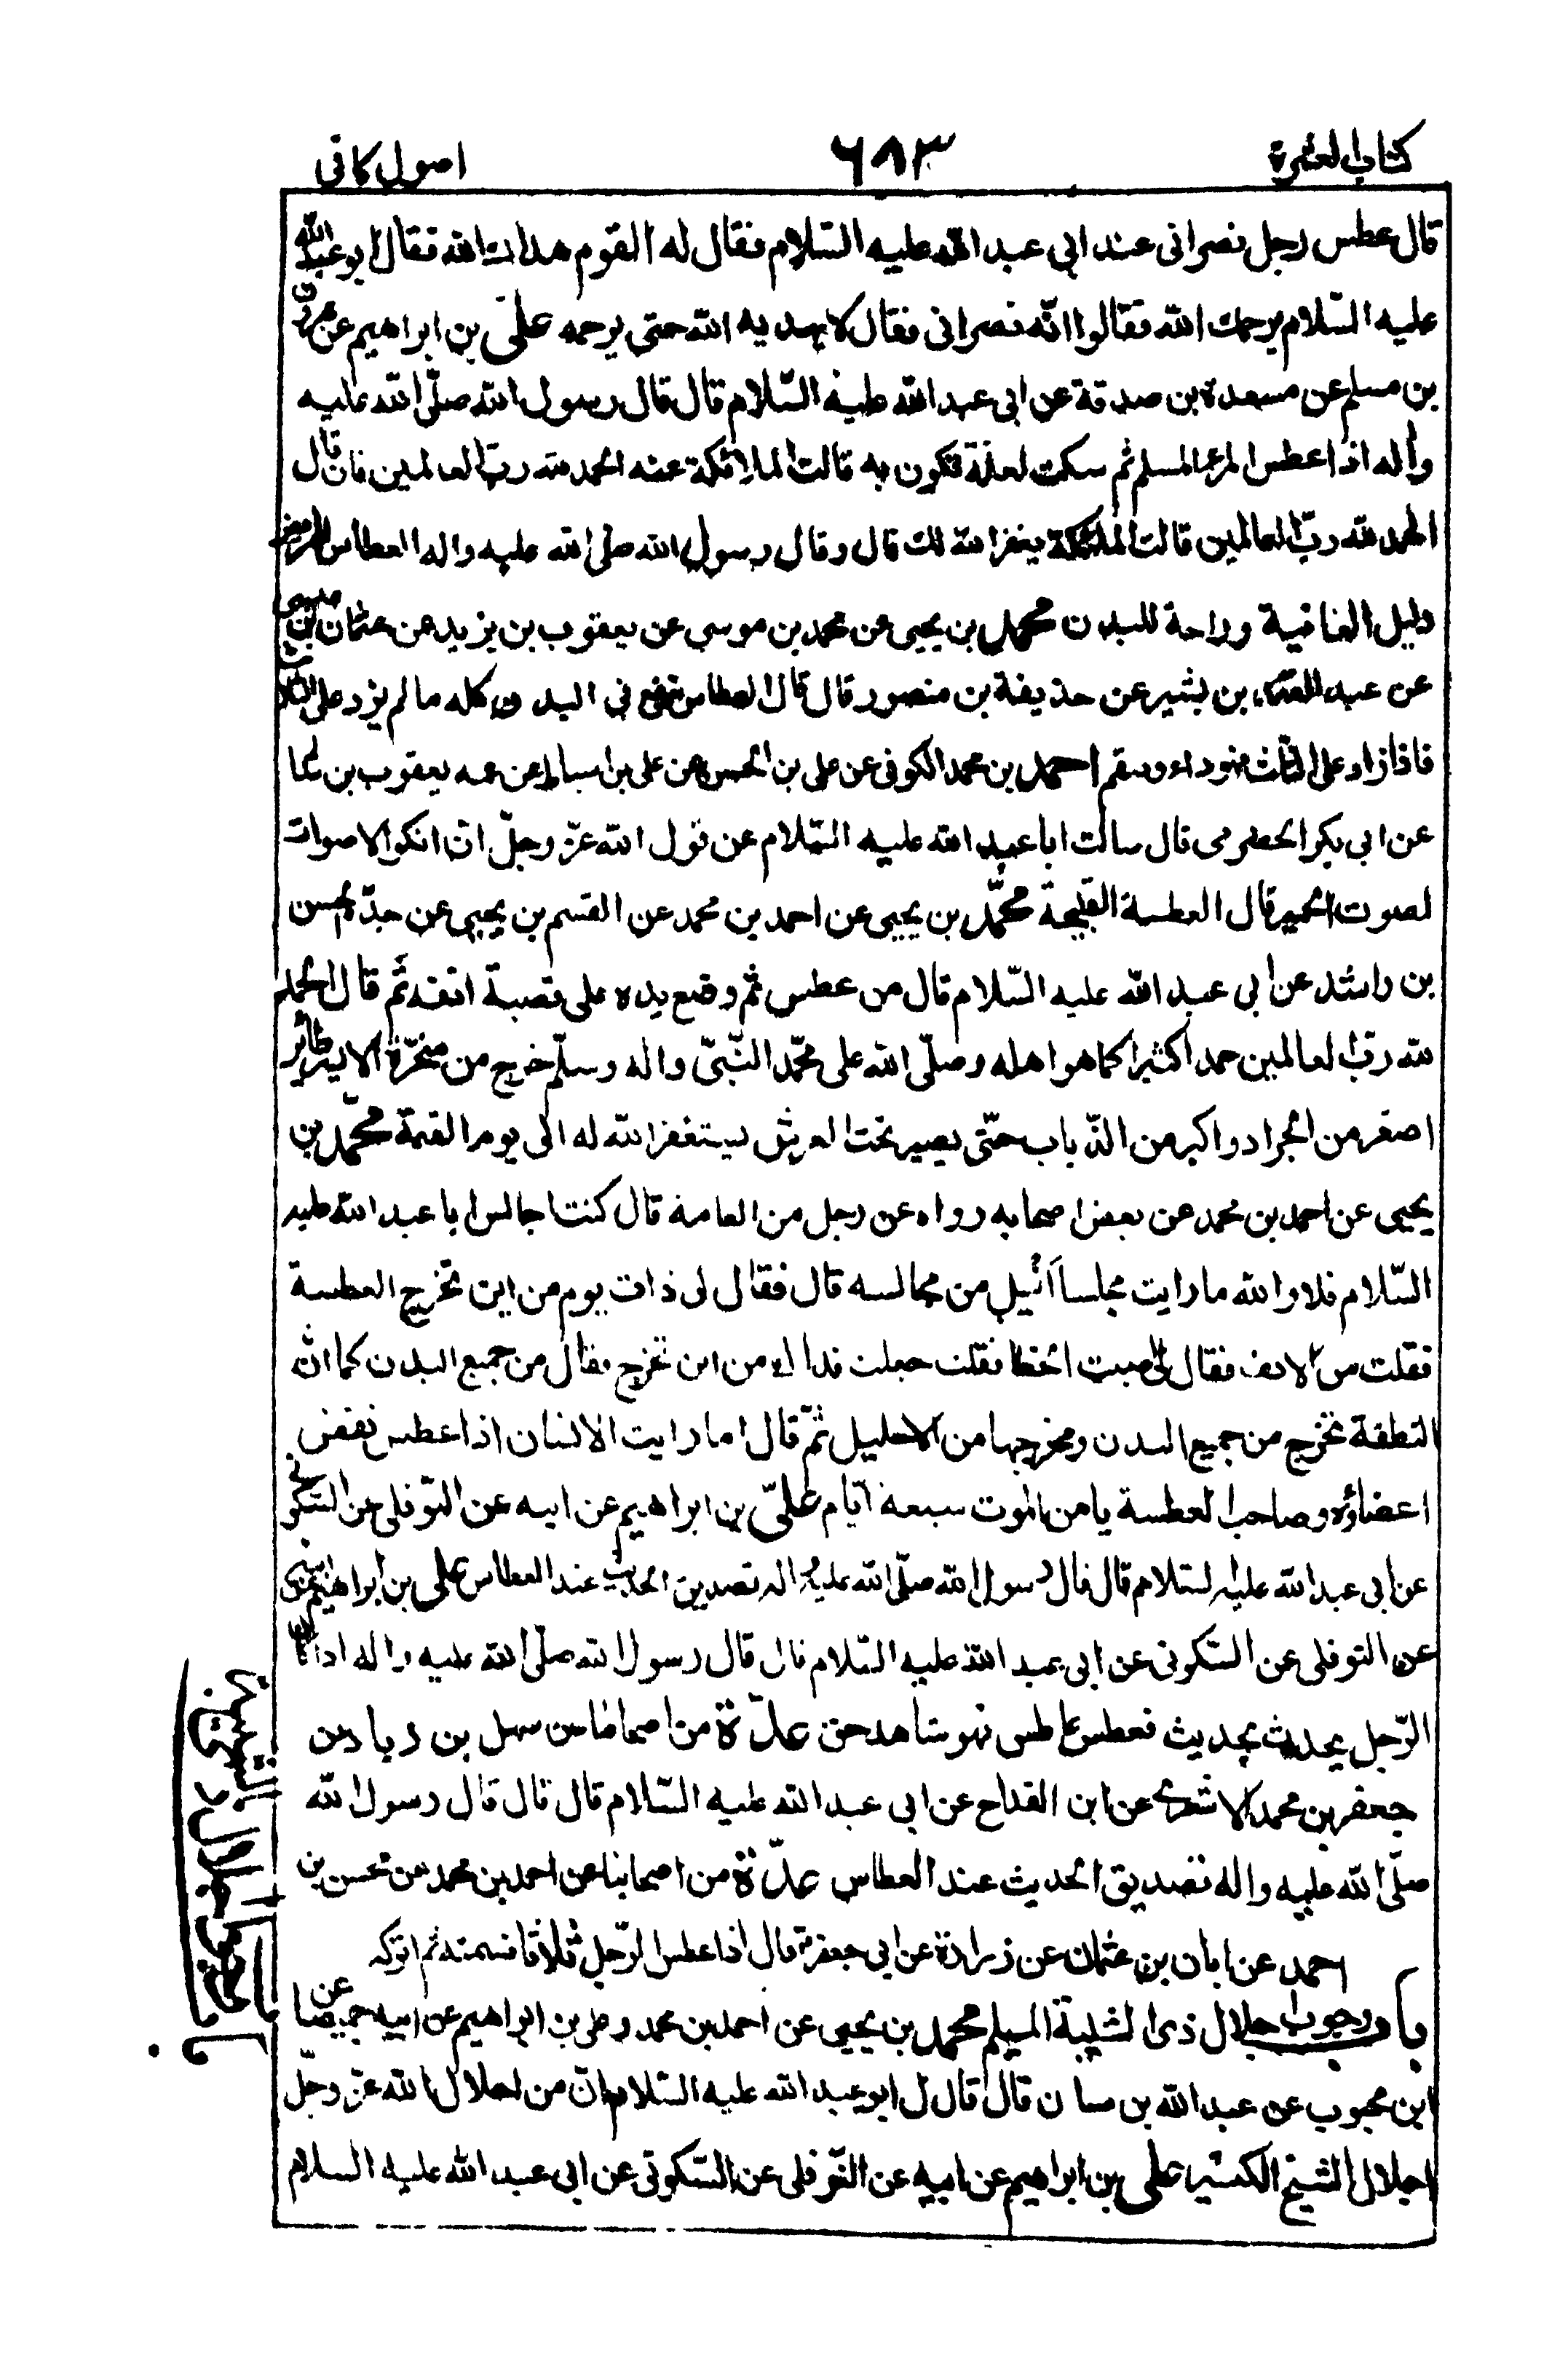 كتاب العشرة
٦٨٣
اصول كافى
قال عطس رجل نصرانى عند ابي عبد الله عليه السّلام فقال له القوم هداك الله فقال ابو عبد الله
عليه السّلام يرحمك الله فقالوا انّه نصرانى فقال لا يهديه الله حتى يرحمه علي بن ابراهيم عن هرون
بن مسلم عن مسعدة بن صدقة عن ابى عبد الله عليه السّلام قال قال رسول الله صلّى الله عليه
واله اذا عطس المرء المسلم ثم سكت لعلة تكون به قالت الملائكة عنه الحمد لله ربّ العالمين فان قال
الحمد لله ربّ العالمين قالت الملئكة يغفر الله لك قال وقال رسول الله صلى الله عليه واله العطاس للمريض
دليل العافية وراحة للبدن محمد بن يحيى عن محمد بن موسى عن يعقوب بن يزيد عن عثمان بن عيسى
عن عبد الصمد بن بشير عن حذيفة بن منصور قال قال العطاس ينفع فى البدن كله ما لم يزد على الثلاث
فاذا زاد على الثلث فهو داء وسقم احمد بن محمد الكوفى عن على بن الحسن عن على بن اسباط عن عمه يعقوب بن سالم
عن ابى بكر الحضرمى قال سالت ابا عبد الله عليه السّلام عن قول الله عزّ وجلّ انّ انكر الاصوات
لصوت الحمير قال العطسة القبيحة محمّد بن يحيى عن احمد بن محمد عن القسم بن يحيى عن جدّه الحسن
بن راشد عن ابى عبد الله عليه السّلام قال من عطس ثم وضع يده على قصبة انفه ثم قال الحمد
لله ربّ العالمين حمدا كثيرا كما هو اهله وصلّى الله على محمّد النّبىّ واله وسلّم خرج من منخره الايسر طائر
اصغر من الجراد واكبر من الذّباب حتّى يصير تحت العرش يستغفر الله له الى يوم القيمة محمّد بن
يحيى عن احمد بن محمد عن بعض اصحابه رواه عن رجل من العامة قال كنت اجالس ابا عبد الله عليه
السّلام فلا والله ما رايت مجلسا انبل من مجالسه قال فقال لى ذات يوم من اين تخرج العطسة
فقلت من الانف فقال لى اصبت الخطا فقلت جعلت فداك من اين تخرج فقال من جميع البدن كما انّ
النطفة تخرج من جميع البدن ومخرجها من الاحليل ثمّ قال اما رايت الانسان اذا عطس نفض
اعضاؤه وصاحب العطسة يامن الموت سبعة ايّام علىّ بن ابراهيم عن ابيه عن النّوفلى عن السّكونى
عن ابى عبد الله عليه السّلام قال قال رسول الله صلّى الله عليه واله تصديق الحديث عند العطاس على بن ابراهيم عن ابيه
عن النوفلى عن السّكونى عن ابى عبد الله عليه السّلام قال قال رسول الله صلّى الله عليه واله اذا كان
الرّجل يحدث بحديث فعطس عاطس فهو شاهد حق عدّة من اصحابنا عن سهل بن زياد عن
جعفر بن محمد الاشعرى عن ابن القداح عن ابى عبد الله عليه السّلام قال قال قال رسول الله
صلّى الله عليه واله تصديق الحديث عند العطاس عدّة من اصحابنا عن احمد بن محمد عن محسن بن
احمد عن ابان بن عثمان عن زرارة عن ابى جعفر قال اذا عطس الرّجل ثلاثا فسمته ثم اتركه
باب وجوب اجلال ذى الشيبة المسلم محمد بن يحيى عن احمد بن محمد وعلى بن ابراهيم عن ابيه جميعا عن
ابن محبوب عن عبد الله بن سنان قال قال لى ابو عبد الله عليه السّلام انّ من اجلال الله عزّ وجلّ
اجلال الشيخ الكبير على بن ابراهيم عن ابيه عن النّوفلى عن السّكونى عن ابى عبد الله عليه السلام
باب وجوب اجلال ذى الشيبة